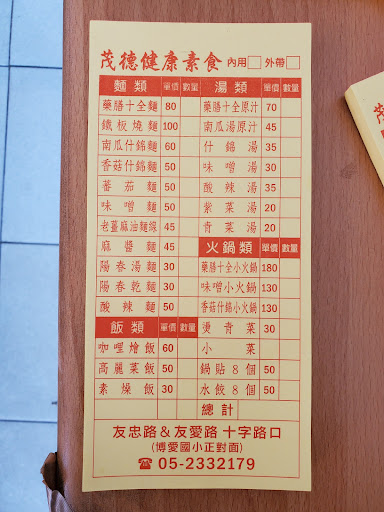 茂德健康素食 內用□ 外帶□
麵類 單價 數量 湯類 單價 數量
藥膳十全麵 80 藥膳十全原汁 70
鐵板燒麵 100 南瓜湯原汁 45
南瓜什錦麵 60 什錦湯 35
香菇什錦麵 50 味噌湯 30
蕃茄麵 50 酸辣湯 35
味噌麵 50 紫菜湯 20
老薑麻油麵線 45 青菜湯 20
麻醬麵 45 火鍋類 單價 數量
陽春湯麵 30 藥膳十全小火鍋 180
陽春乾麵 30 味噌小火鍋 130
酸辣麵 50 香菇什錦小火鍋 130
飯類 單價 數量 燙青菜 30
咖哩燴飯 60 小菜
高麗菜飯 50 鍋貼8個 50
素燥飯 30 水餃8個 50
總計
友忠路&友愛路 十字路口
(博愛國小正對面)
☎ 05-2332179